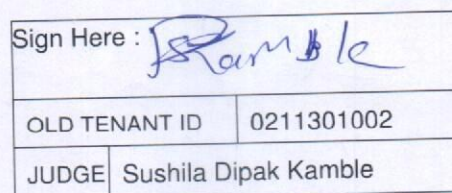 Sign Here : SKamble
OLD TENANT ID 0211301002
JUDGE Sushila Dipak Kamble